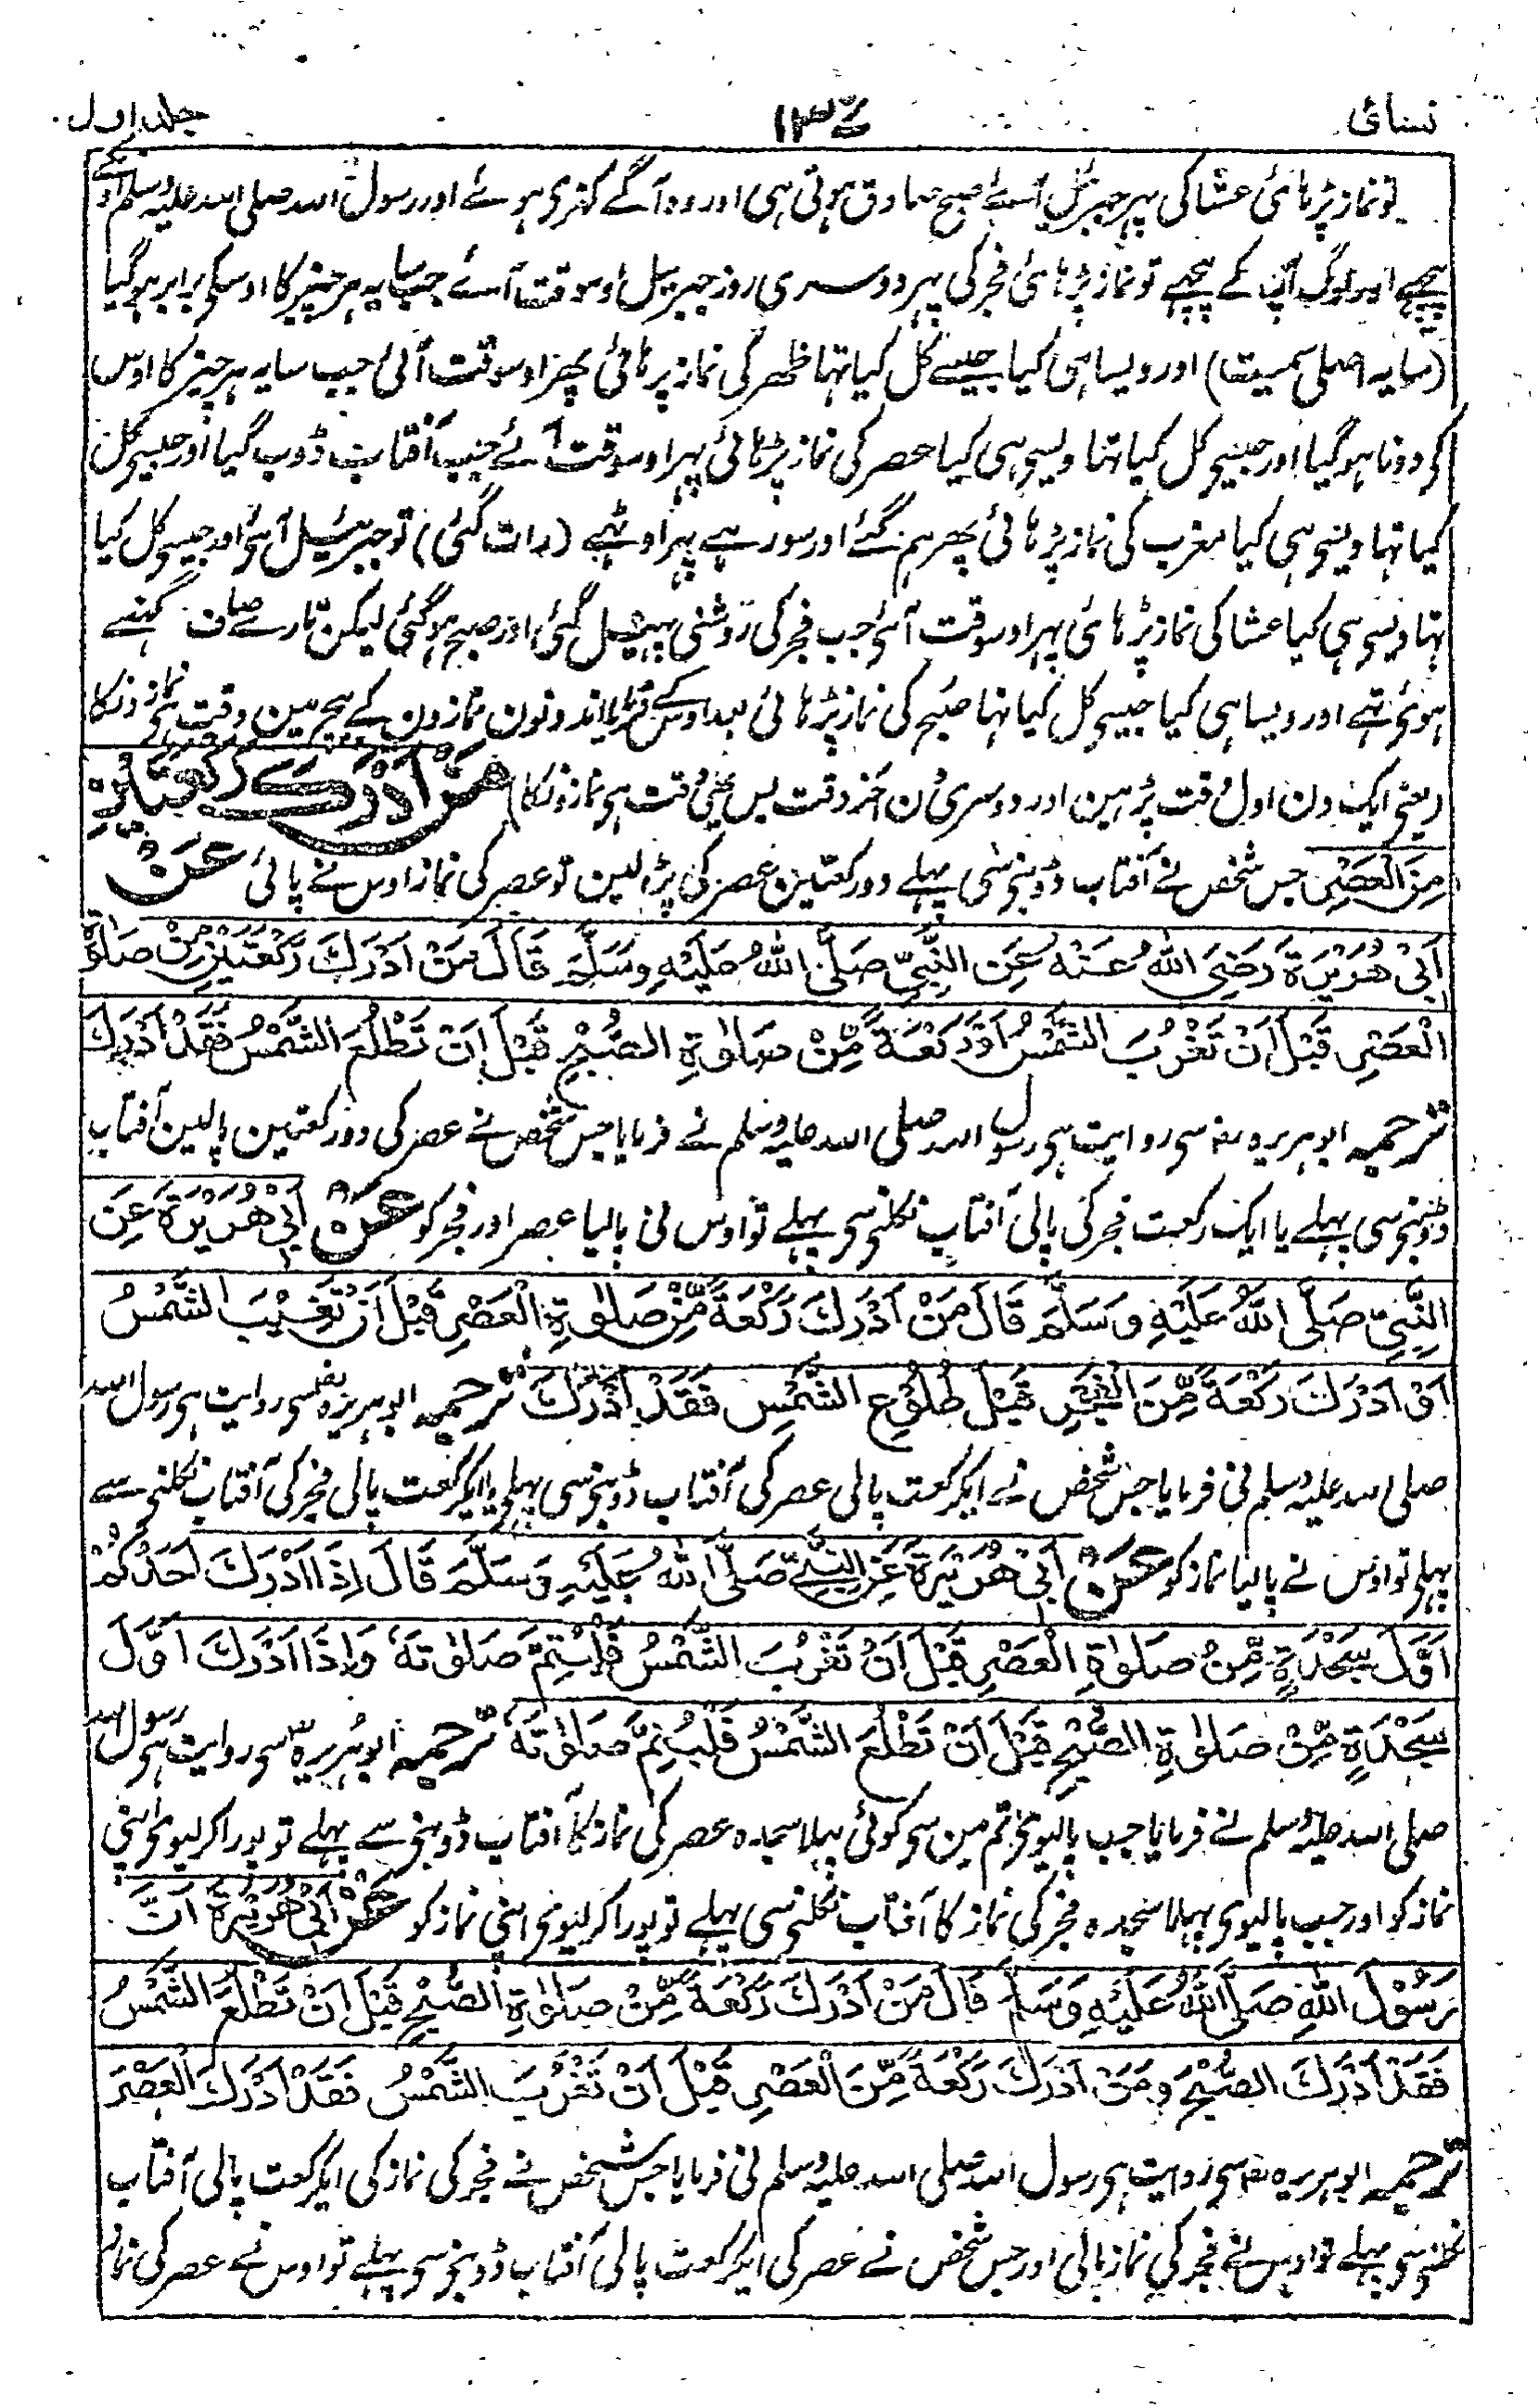 نسائی ۱۳۷ جلد اول
تو نماز پڑہائی عشا کی پہر جبرئیل آئے صبح صادق ہوتی ہی اور وہ آگے کہڑی ہوئے اور رسول اللہ صلی اللہ علیہ وسلم اونکے
پیچہے اور لوگ آپ کے پیچہے تو نماز پڑہائی فجر کی پہر دوسری روز جبریل اوسوقت آئے جب سایہ ہر چیز کا اوسکی برابر ہوگیا
(سایہ اصلی سمیت) اور ویسا ہی کیا جیسے کل کیا تہا ظہر کی نماز پڑہائی پھر اوسوقت آئی جب سایہ ہر چیز کا اوس
کی دونا ہوگیا اور جیسی کل کیا تہا ویسی ہی کیا عصر کی نماز پڑہائی پہر اوسوقت آئے جب آفتاب ڈوب گیا اور جیسی کل
کیا تہا ویسی ہی کیا مغرب کی نماز پڑہائی پھر ہم گئے اور سو رہے پہر اوٹہے (رات گئی) تو جبرئیل آئی اور جیسی کل کیا
تہا ویسی ہی کیا عشا کی نماز پڑہائی پہر اوسوقت آئی جب فجر کی روشنی پہیل گئی اور صبح ہوگئی لیکن تارے صاف گہنے
ہوئی تہے اور ویسا ہی کیا جیسی کل کیا تہا صبح کی نماز پڑہائی بعد اوس کے فرمایا ان دونون نمازون کے بیچ مین وقت ہی نمازونکا
(یعنی ایک دن اول وقت پڑہین اور دوسری دن آخر وقت پس یہی وقت ہی نمازونکا) مَنْ اَدْرَكَ رَكْعَتَيْنِ
مِنَ الْعَصْرِ جس شخص نے آفتاب ڈوبنی سی پہلے دو رکعتین عصر کی پڑہ لین تو عصر کی نماز اوس نے پائی عَنْ
اَبِیْ هُرَيْرَةَ رَضِیَ اللّٰهُ عَنْهُ عَنِ النَّبِیِّ صَلَّی اللّٰهُ عَلَيْهِ وَسَلَّمَ قَالَ مَنْ اَدْرَكَ رَكْعَتَيْنِ مِنْ صَلٰوةِ
الْعَصْرِ قَبْلَ اَنْ تَغْرُبَ الشَّمْسُ اَوْ رَكْعَةً مِّنْ صَلٰوةِ الصُّبْحِ قَبْلَ اَنْ تَطْلُعَ الشَّمْسُ فَقَدْ اَدْرَكَ
ترجمہ ابو ہریرہ رضہ سی روایت ہی رسول اللہ صلی اللہ علیہ وسلم نے فرمایا جس شخص نے عصر کی دو رکعتین پالین آفتاب
ڈوبنی سی پہلے یا ایک رکعت فجر کی پالی آفتاب نکلنی سی پہلے تو اوس نی پالیا عصر اور فجر کو عَنْ اَبِیْ هُرَيْرَةَ عَنِ
النَّبِیِّ صَلَّی اللّٰهُ عَلَيْهِ وَسَلَّمَ قَالَ مَنْ اَدْرَكَ رَكْعَةً مِّنْ صَلٰوةِ الْعَصْرِ قَبْلَ اَنْ تَغِيْبَ الشَّمْسُ
اَوْ اَدْرَكَ رَكْعَةً مِّنَ الْفَجْرِ قَبْلَ طُلُوْعِ الشَّمْسِ فَقَدْ اَدْرَكَ ترجمہ ابو ہریرہ رضہ سی روایت ہی رسول اللہ
صلی اللہ علیہ وسلم نی فرمایا جس شخص نے ایکرکعت پالی عصر کی آفتاب ڈوبنی سی پہلی یا ایکرکعت پالی فجر کی آفتاب نکلنی سے
پہلی تو اوس نے پالیا نماز کو عَنْ اَبِیْ هُرَيْرَةَ عَنِ النَّبِیِّ صَلَّی اللّٰهُ عَلَيْهِ وَسَلَّمَ قَالَ اِذَا اَدْرَكَ اَحَدُكُمْ
اَوَّلَ سَجْدَةٍ مِّنْ صَلٰوةِ الْعَصْرِ قَبْلَ اَنْ تَغْرُبَ الشَّمْسُ فَلْيُتِمَّ صَلٰوتَهٗ وَاِذَا اَدْرَكَ اَوَّلَ
سَجْدَةٍ مِّنْ صَلٰوةِ الصُّبْحِ قَبْلَ اَنْ تَطْلُعَ الشَّمْسُ فَلْيُتِمَّ صَلٰوتَهٗ ترجمہ ابو ہریرہ سی روایت ہی رسول اللہ
صلی اللہ علیہ وسلم نے فرمایا جب پالیوی تم مین سی کوئی پہلا سجدہ عصر کی نماز کا آفتاب ڈوبنی سے پہلے تو پورا کر لیوی اپنی
نماز کو اور جب پالیوی پہلا سجدہ فجر کی نماز کا آفتاب نکلنی سی پہلے تو پورا کر لیوی اپنی نماز کو عَنْ اَبِیْ هُرَيْرَةَ اَنَّ
رَسُوْلَ اللّٰهِ صَلَّی اللّٰهُ عَلَيْهِ وَسَلَّمَ قَالَ مَنْ اَدْرَكَ رَكْعَةً مِّنْ صَلٰوةِ الصُّبْحِ قَبْلَ اَنْ تَطْلُعَ الشَّمْسُ
فَقَدْ اَدْرَكَ الصُّبْحَ وَمَنْ اَدْرَكَ رَكْعَةً مِّنَ الْعَصْرِ قَبْلَ اَنْ تَغْرُبَ الشَّمْسُ فَقَدْ اَدْرَكَ الْعَصْرَ
ترجمہ ابو ہریرہ رضہ سی روایت ہی رسول اللہ صلی اللہ علیہ وسلم نی فرمایا جس شخص نے فجر کی نماز کی ایکرکعت پالی آفتاب
نکلنی سی پہلے تو اوس نے فجر کی نماز پالی اور جس شخص نے عصر کی ایکرکعت پالی آفتاب ڈوبنی سی پہلے تو اوس نے عصر کی نماز